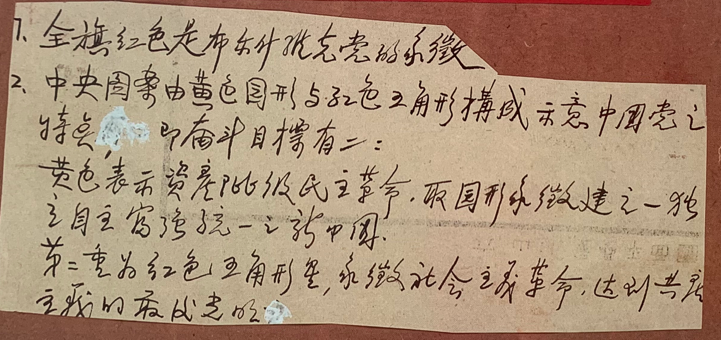 1. 全旗红色是布尔什维克党的象徵
2. 中央图案由黄色圆形与红色五角形構成 示意中國党之
特点, 即奋斗目標有二：
黄色表示資產阶级民主革命. 取圆形象徵建立一独
立自主富强統一之新中國.
第二重为红色五角形星, 象徵社会主義革命. 达到共產
主義的最后